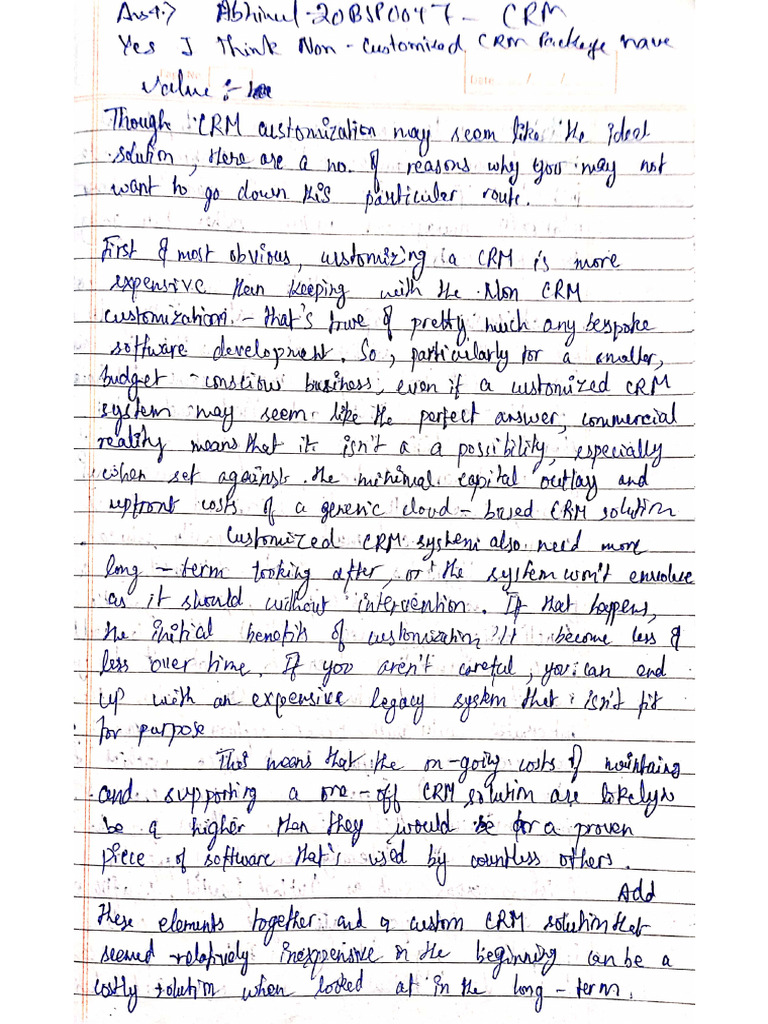 Ans4.> Abhinul-20BSP0047- CRM
Yes I Think Non-Customized CRM Package have
Date / /
value :-
Though CRM customization may seem like the ideal
solution, there are a no. of reasons why you may not
want to go down this particular route.
First & most obvious, customizing a CRM is more
expensive than keeping with the Non CRM
customization. - that's true of pretty much any bespoke
software development. So, particularly for a smaller,
budget -conscious business, even if a customized CRM
system may seem like the perfect answer, commercial
reality means that it isn't a a possibility, especially
when set against the minimal capital outlay and
upfront costs of a generic cloud-based CRM solution
Customized CRM system also need more
long-term looking after, or the system won't envolve
as it should without intervention. If that happens,
the initial benefits of customization'll become less &
less over time. If you aren't careful, you can end
up with an expensive legacy system that isn't fit
for purpose
This means that the on-going costs of maintaing
and supporting a one-off CRM solution are likely
be a higher than they would be for a proven
piece of software that's used by countless others.
Add
these elements together and a custom CRM solution that
seemed relatively inexpensive in the beginning can be a
costly solution when looked at in the long-term.